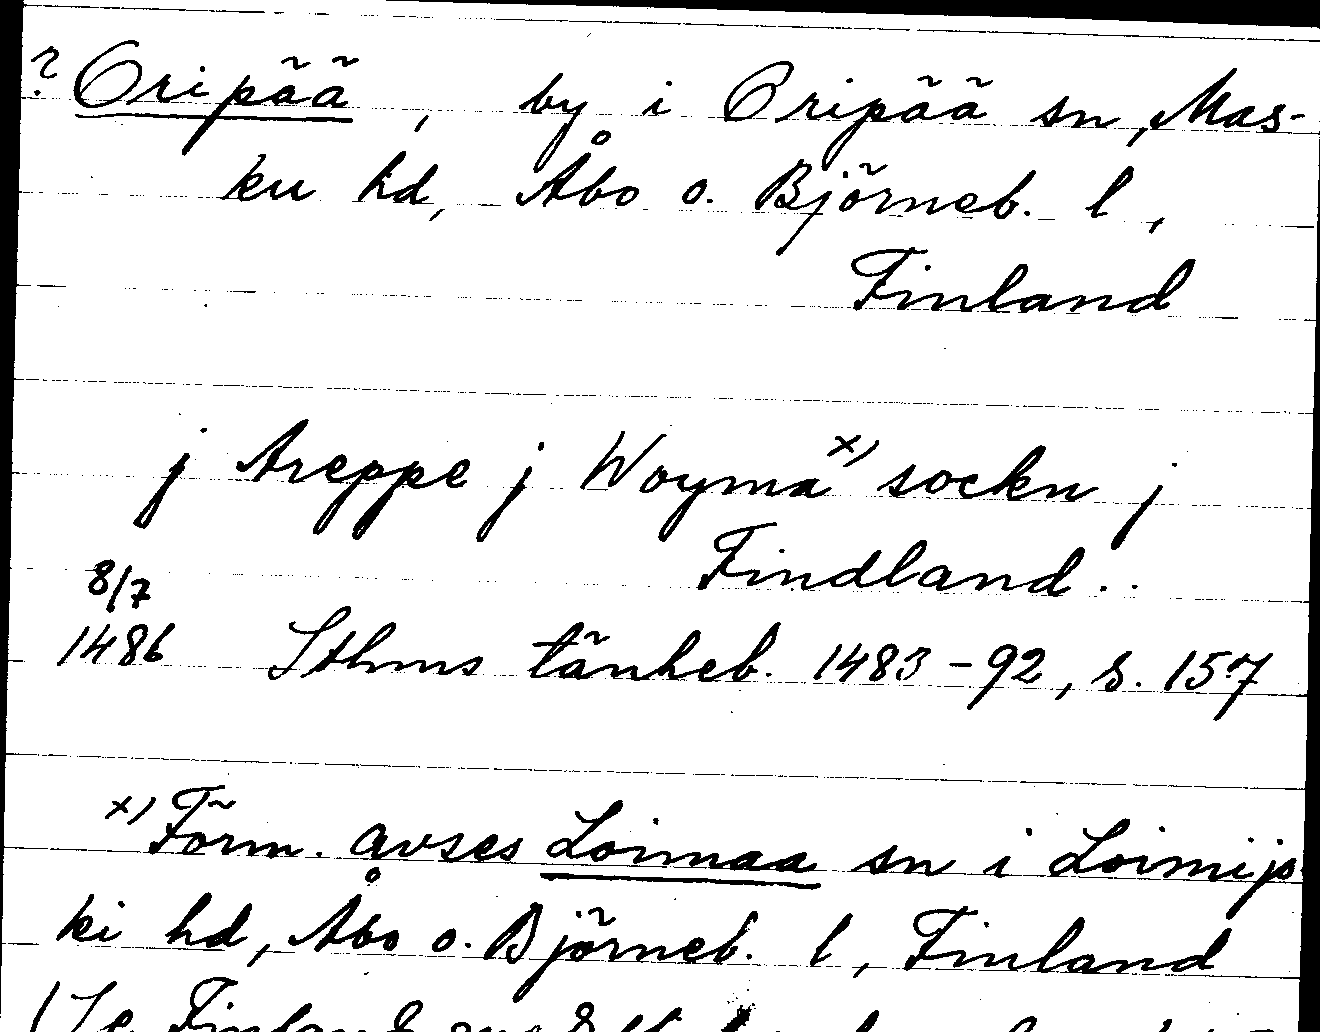 ? Oripää, by i Oripää sn, Mas-
ku hd, Åbo o. Björneb. l,
Finland
j Areppe j Woyma x) sockn j
Findland..
8/7
1486 Sthms tänkeb. 1483-92, s. 157
x) Förm. avses Loimaa sn i Loimijo
ki hd, Åbo o. Björneb. l, Finland
(Se Finland